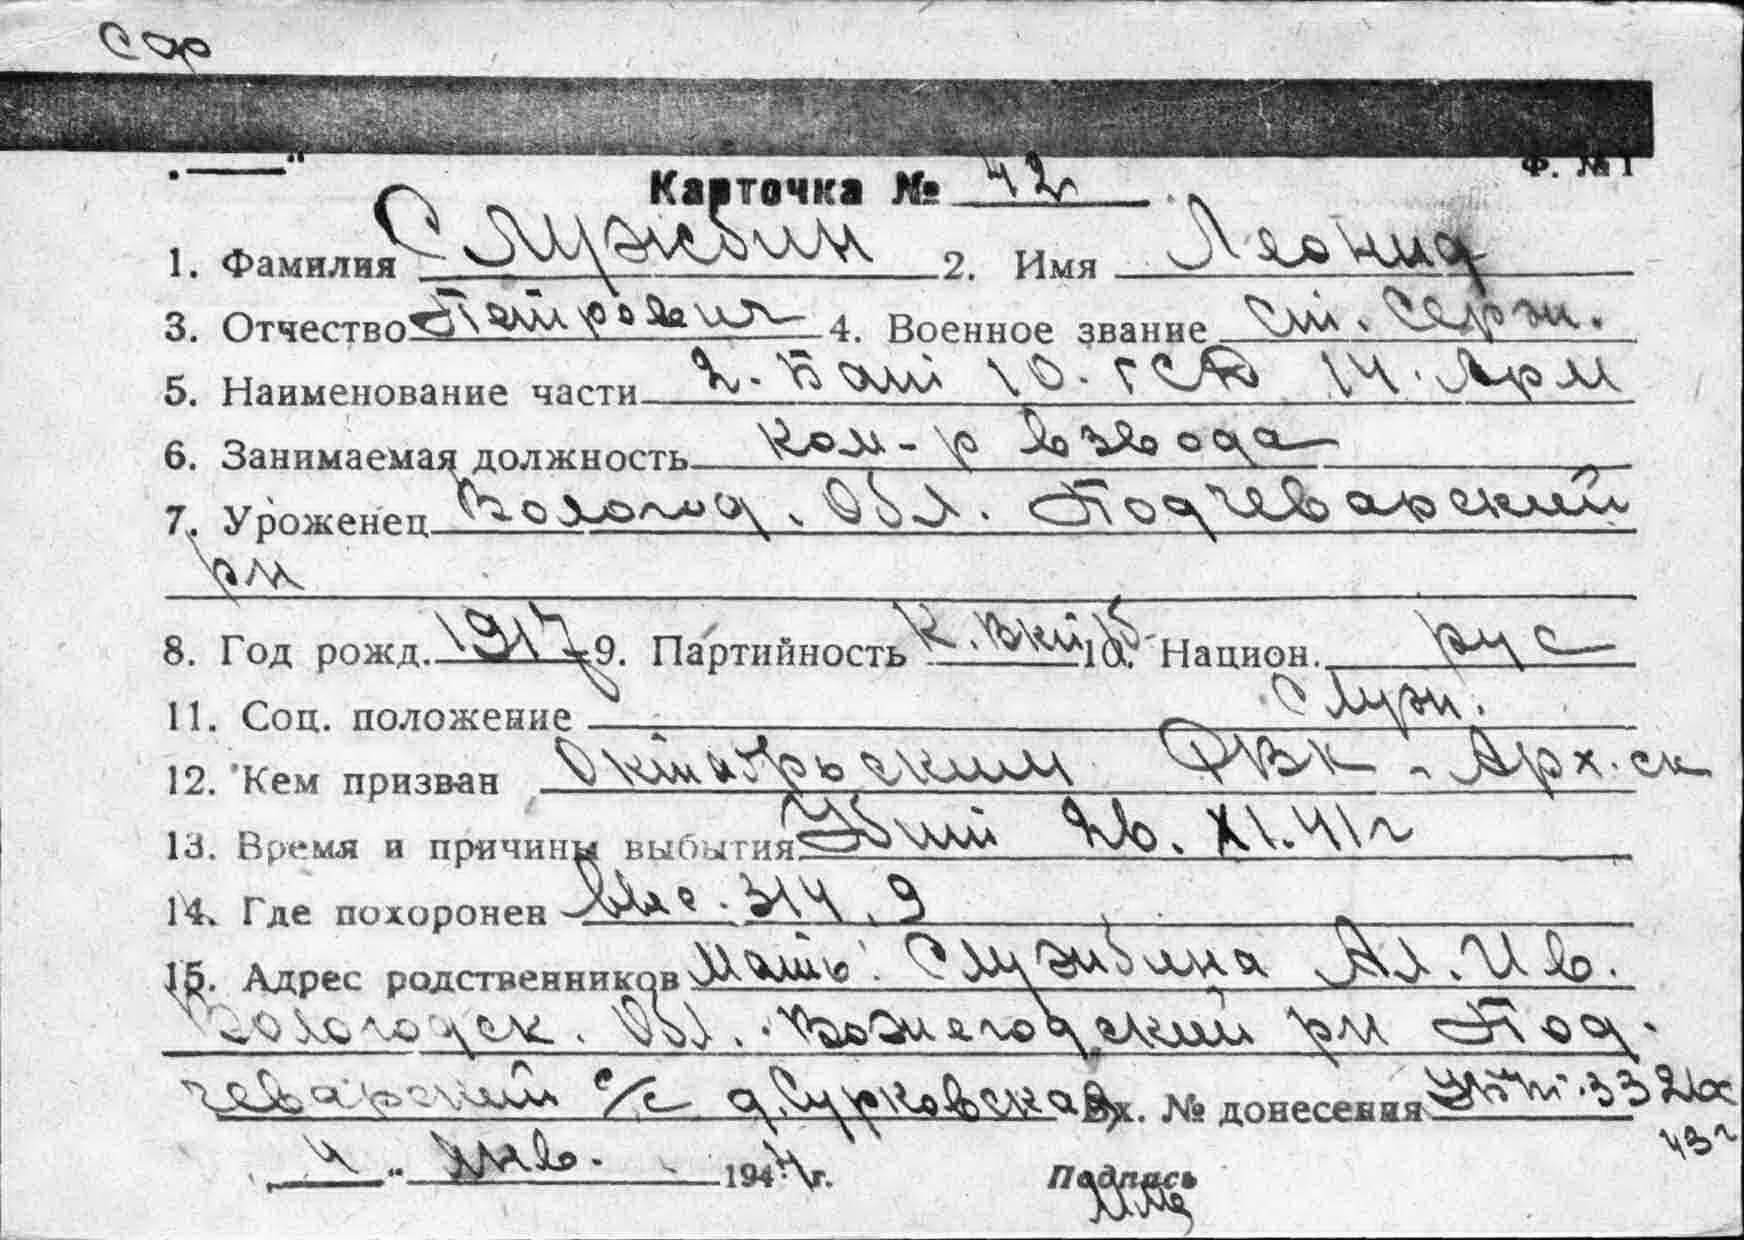 сар
Ф. № 1
Карточка № 42
1. Фамилия Службин 2. Имя Леонид
3. Отчество Петрович 4. Военное звание Ст. Серж.
5. Наименование части 2. Бат 10. ГСД 14. Арм
6. Занимаемая должность ком-р взвода
7. Уроженец Вологод. Обл. Подчеварский
рн
8. Год рожд. 1917 9. Партийность К. ВКП/б 10. Национ. рус
11. Соц. положение Служ.
12. Кем призван Октябрьским РВК - Арх.ск
13. Время и причины выбытия Убит 26. XI. 41 г
14. Где похоронен Выс. 314, 9
15. Адрес родственников Мать: Службина Ал. Ив.
Вологодск. Обл. Вожегодский рн Под-
чеварский с/с д. Сурковская Вх. № донесения 332
43 г
"4" Янв. 1944 г. Подпись